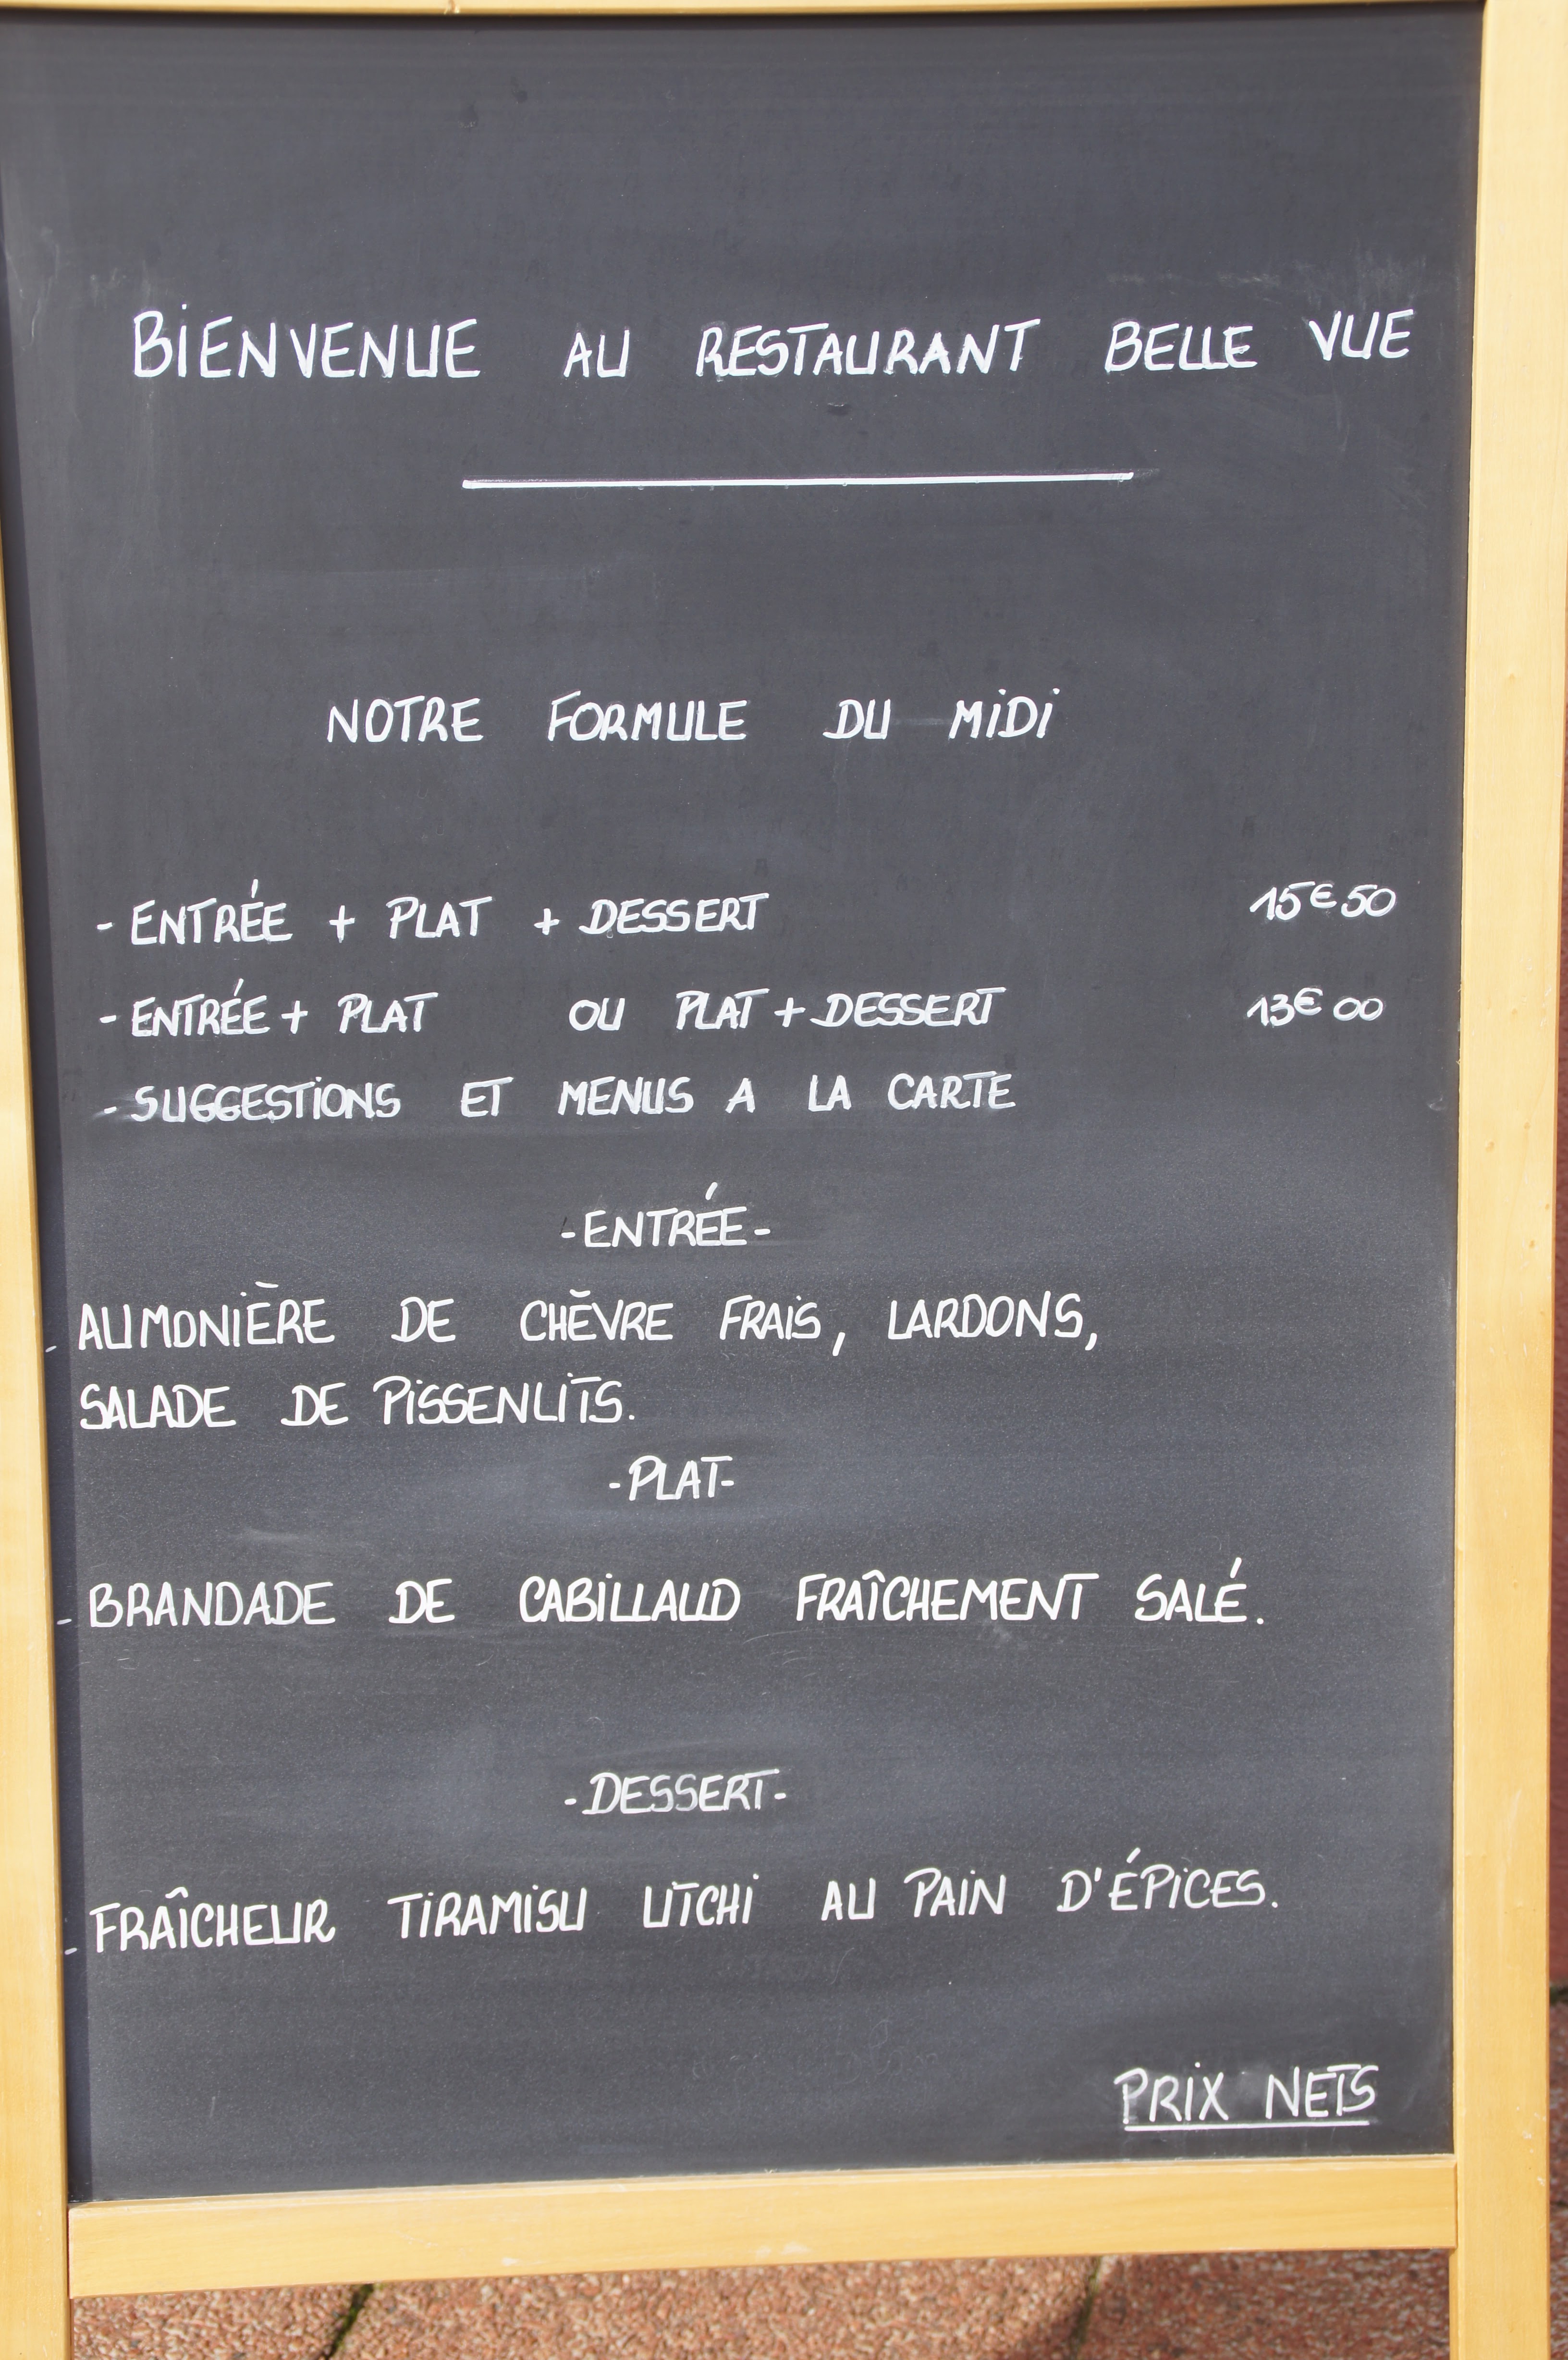 BIENVENUE AU RESTAURANT BELLE VUE
NOTRE FORMULE DU MIDI
- ENTRÉE + PLAT + DESSERT 15€50
- ENTRÉE + PLAT OU PLAT + DESSERT 13€00
- SUGGESTIONS ET MENUS A LA CARTE
- ENTRÉE -
- AUMONIÈRE DE CHÈVRE FRAIS, LARDONS,
SALADE DE PISSENLITS.
- PLAT -
- BRANDADE DE CABILLAUD FRAÎCHEMENT SALÉ.
- DESSERT -
- FRAÎCHEUR TIRAMISU LITCHI AU PAIN D'ÉPICES.
PRIX NETS